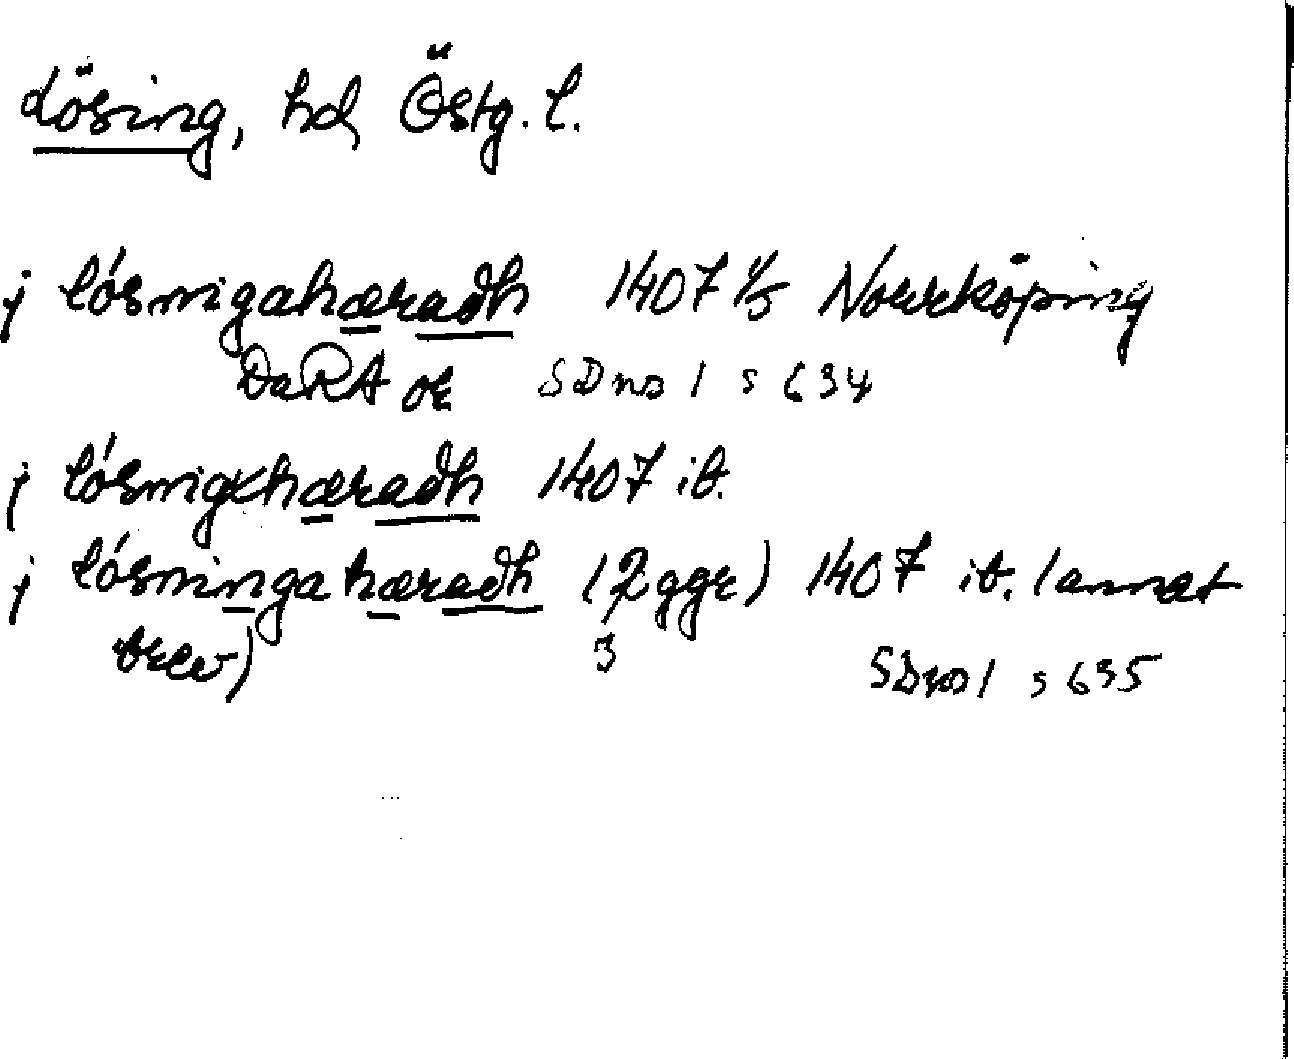 Lösing, hd, Östg. l.
j lósnigahæradh 1407 1/5 Norrköping
DaRA or SDns 1 s 634
j lósnigxhæradh 1407 ib.
j lósninga hæradh (2 ggr) 1407 ib. (annat
brev) 3 SDns 1 s 635